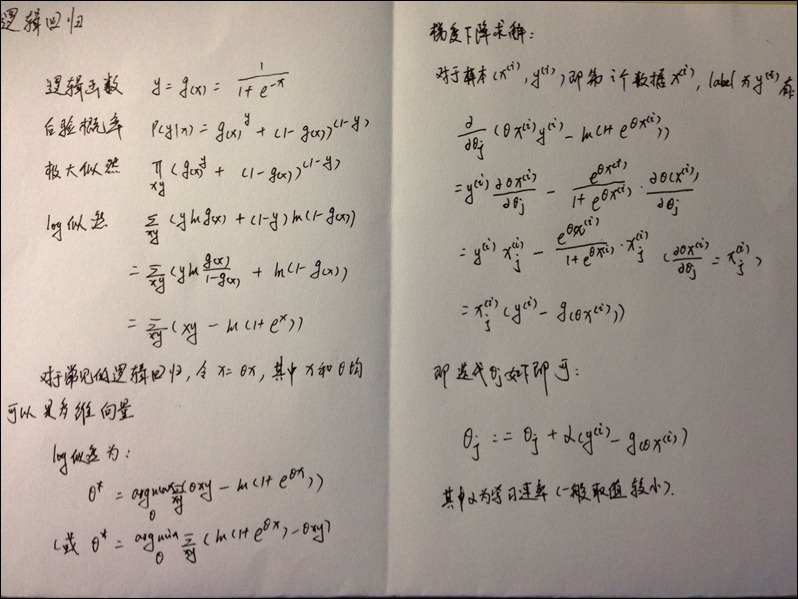 逻辑回归
逻辑函数 y = g(x) = 1/(1 + e^{-x})
后验概率 P(y|x) = g(x)^y + (1 - g(x))^{(1-y)}
极大似然 ∏_{xy} (g(x)^y + (1 - g(x))^{(1-y)})
log似然 Σ_{xy} (y ln g(x) + (1-y) ln(1 - g(x)))
= Σ_{xy} (y ln g(x)/(1-g(x)) + ln(1 - g(x)))
= Σ_{xy} (xy - ln(1 + e^x))
对于常见的逻辑回归, 令 x = θx, 其中 x 和 θ 均
可以是多维向量
log似然为:
θ* = argmax_θ Σ_{xy} (θxy - ln(1 + e^{θx}))
(或 θ* = argmin_θ Σ_{xy} (ln(1 + e^{θx}) - θxy)
梯度下降求解:
对于样本 (x^{(i)}, y^{(i)}) 即第 i 个数据 x^{(i)}, label 为 y^{(i)} 有
∂/∂θ_j (θx^{(i)}y^{(i)} - ln(1 + e^{θx^{(i)}}))
= y^{(i)} ∂θx^{(i)}/∂θ_j - e^{θx^{(i)}}/(1 + e^{θx^{(i)}}) · ∂θ(x^{(i)})/∂θ_j
= y^{(i)} x_j^{(i)} - e^{θx^{(i)}}/(1 + e^{θx^{(i)}}) · x_j^{(i)} (∂θx^{(i)}/∂θ_j = x_j^{(i)})
= x_j^{(i)} (y^{(i)} - g(θx^{(i)}))
即迭代θ_j如下即可:
θ_j := θ_j + α(y^{(i)} - g(θx^{(i)})
其中α为学习速率 (一般取值较小).